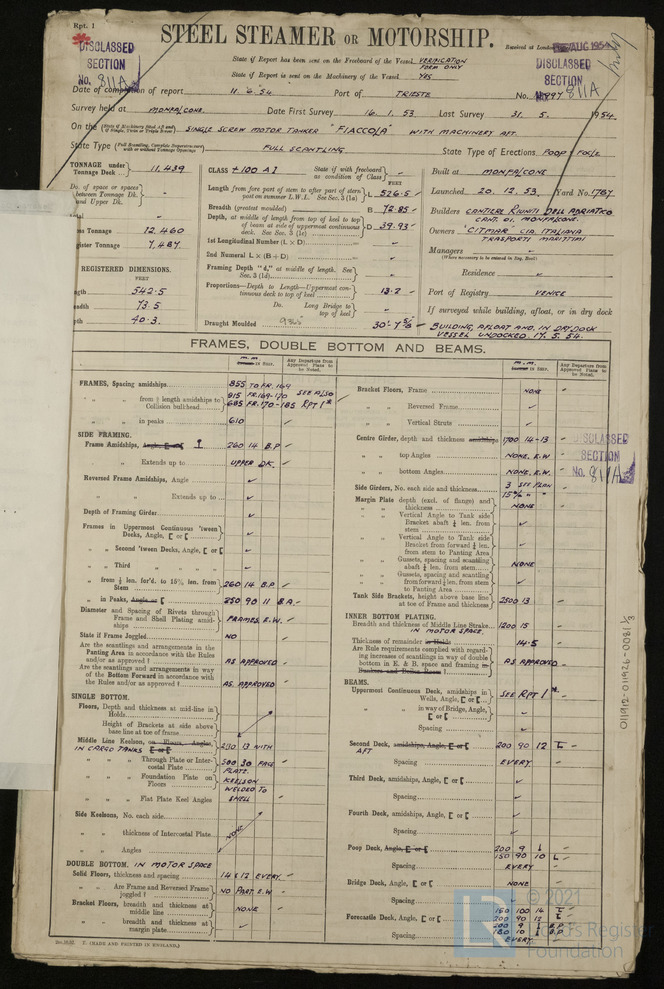 Rpt. 1
STEEL STEAMER OR MOTORSHIP.
Received at London AUG 1954
DISCLASSED
SECTION
No. 811A
State if Report has been sent on the Freeboard of the Vessel VERIFICATION FORM ONLY
State if Report is sent on the Machinery of the Vessel YES
DISCLASSED
SECTION
811A
Date of completion of report 11.6.54 Port of TRIESTE No.
Survey held at MONFALCONE Date First Survey 16.1.53 Last Survey 31.5.1954
On the (State if Machinery fitted Aft and if Single, Twin or Triple Screw) SINGLE SCREW MOTOR TANKER "FIACCOLA" WITH MACHINERY AFT
State Type (Full Scantling, Complete Superstructure with or without Tonnage Openings) FULL SCANTLING State Type of Erections POOP FO'SLE
TONNAGE under Tonnage Deck 11,439
Do. of space or spaces between Tonnage Dk. and Upper Dk.
12,460
7,487
REGISTERED DIMENSIONS.
FEET
542.5
73.5
40.3
CLASS +100 A1 State if with freeboard as condition of Class
FEET
Length from fore part of stem to after part of stern post on summer L.W.L. See Sec. 3 (1a) L 526.5
Breadth (greatest moulded) B 72.85
Depth, at middle of length from top of keel to top of beam at side of uppermost continuous deck. See Sec. 3 (1c) D 39.93
1st Longitudinal Number (L × D)
2nd Numeral L × (B + D)
Framing Depth "d," at middle of length. See Sec. 3 (1d)
Proportions—Depth to Length—Uppermost continuous deck to top of keel 13.2
Do. Long Bridge to top of keel
Draught Moulded 30'-7 5/8
Built at MONFALCONE
Launched 20.12.53 Yard No. 1787
Builders CANTIERI RIUNITI DELL'ADRIATICO
CANT. DI MONFALCONE
Owners "CITMAR" CIA. ITALIANA
TRASPORTI MARITTIMI
Managers
(Where necessary to be entered in Reg. Book)
Residence
Port of Registry VENICE
If surveyed while building, afloat, or in dry dock
BUILDING, AFLOAT AND IN DRYDOCK
VESSEL UNDOCKED 17.5.54.
FRAMES, DOUBLE BOTTOM AND BEAMS.
m.m. in SHIP. Any Departure from Approved Plans to be Noted.
FRAMES, Spacing amidships 855 TO FR. 169
" " from ⅕ length amidships to Collision bulkhead 815 FR. 169-170 SEE ALSO
685 FR. 170-185 RPT 1*
" " in peaks 610
SIDE FRAMING.
Frame Amidships, Angle, [ or [ 260 14 B.P
" " Extends up to UPPER DK.
Reversed Frame Amidships, Angle
" " " Extends up to
Depth of Framing Girder
Frames in Uppermost Continuous 'tween Decks, Angle, [ or [
" " Second 'tween Decks, Angle, [ or [
" " Third " " " "
" from ⅕ len. for'd. to 15% len. from Stem 260 14 B.P.
" in Peaks, Angle or [ 250 90 11 B.A.
Diameter and Spacing of Rivets through Frame and Shell Plating amidships FRAMES. E.W.
State if Frame Joggled NO
Are the scantlings and arrangements in the Panting Area in accordance with the Rules and/or as approved? AS APPROVED
Are the scantlings and arrangements in way of the Bottom Forward in accordance with the Rules and/or as approved? AS APPROVED
SINGLE BOTTOM.
Floors, Depth and thickness at mid-line in Holds
Height of Brackets at side above base line at toe of frame
Middle Line Keelson, on Floors, Angles, [ or [ 230 13 WITH
IN CARGO TANKS
" " Through Plate or Intercostal Plate 500 30 FACE
PLATE.
" " Foundation Plate on Floors KEELSON
WELDED TO
" " Flat Plate Keel Angles SHELL
Side Keelsons, No. each side
" " thickness of Intercostal Plate NONE
" " Angles
DOUBLE BOTTOM. IN MOTOR SPACE
Solid Floors, thickness and spacing 14 & 12 EVERY
" " Are Frame and Reversed Frame joggled? NO PART. E.W
Bracket Floors, breadth and thickness at middle line NONE
" " breadth and thickness at margin plate
Bracket Floors, Frame NONE
" " Reversed Frame
" " Vertical Struts
Centre Girder, depth and thickness amidships 1700 14-13
" " top Angles NONE. E.W.
" " bottom Angles NONE. E.W.
Side Girders, No. each side and thickness 3 SEE PLAN
15%
Margin Plate depth (excl. of flange) and thickness NONE
" " Vertical Angle to Tank side Bracket abaft ⅕ len. from stem
" " Vertical Angle to Tank side Bracket from forward ⅕ len. from stem to Panting Area
" " Gussets, spacing and scantling abaft ⅕ len. from stem NONE
" " Gussets, spacing and scantling from forward ⅕ len. from stem to Panting Area
Tank Side Brackets, height above base line at toe of Frame and thickness 2500 13
INNER BOTTOM PLATING.
Breadth and thickness of Middle Line Strake 1200 15
IN MOTOR SPACE.
Thickness of remainder in Holds 14.5
Are Rule requirements complied with regarding increases of scantlings in way of double bottom in E. & B. space and framing in Bunkers and Boiler Room? AS APPROVED
BEAMS.
Uppermost Continuous Deck, amidships in Wells, Angle, [ or [ SEE RPT 1*
" " in way of Bridge, Angle, [ or [
Spacing
Second Deck, amidships, Angle, [ or [ 200 90 12
AFT
Spacing EVERY
Third Deck, amidships, Angle, [ or [
Spacing
Fourth Deck, amidships, Angle, [ or [
Spacing
Poop Deck, Angle, [ or [ 200 9
150 90 10
Spacing EVERY
Bridge Deck, Angle, [ or [ NONE
Spacing
Forecastle Deck, Angle, [ or [ 150 100 14
200 90 12
200 9 B.P.
180 10 B.P
Spacing EVERY
DISCLASSED
SECTION
No. 811A
011912-011926-0081 1/3
(MADE AND PRINTED IN ENGLAND.)
© 2021
Lloyd's Register
Foundation